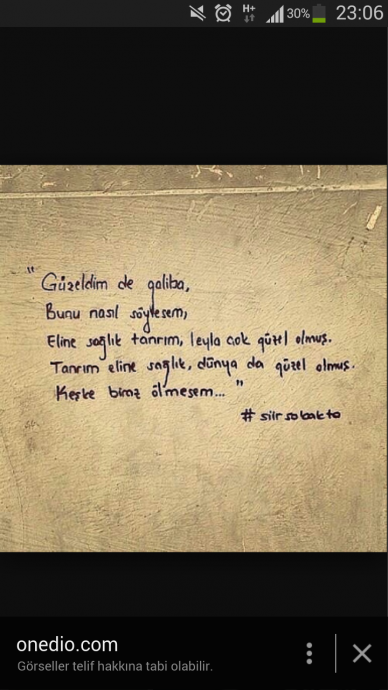 H+
30%
23:06
" Güzeldim de galiba,
Bunu nasıl söylesem,
Eline sağlık tanrım, leyla çok güzel olmuş.
Tanrım eline sağlık, dünya da güzel olmuş.
Keşke biraz ölmesem... "
# siirsokakta
onedio.com
Görseller telif hakkına tabi olabilir.